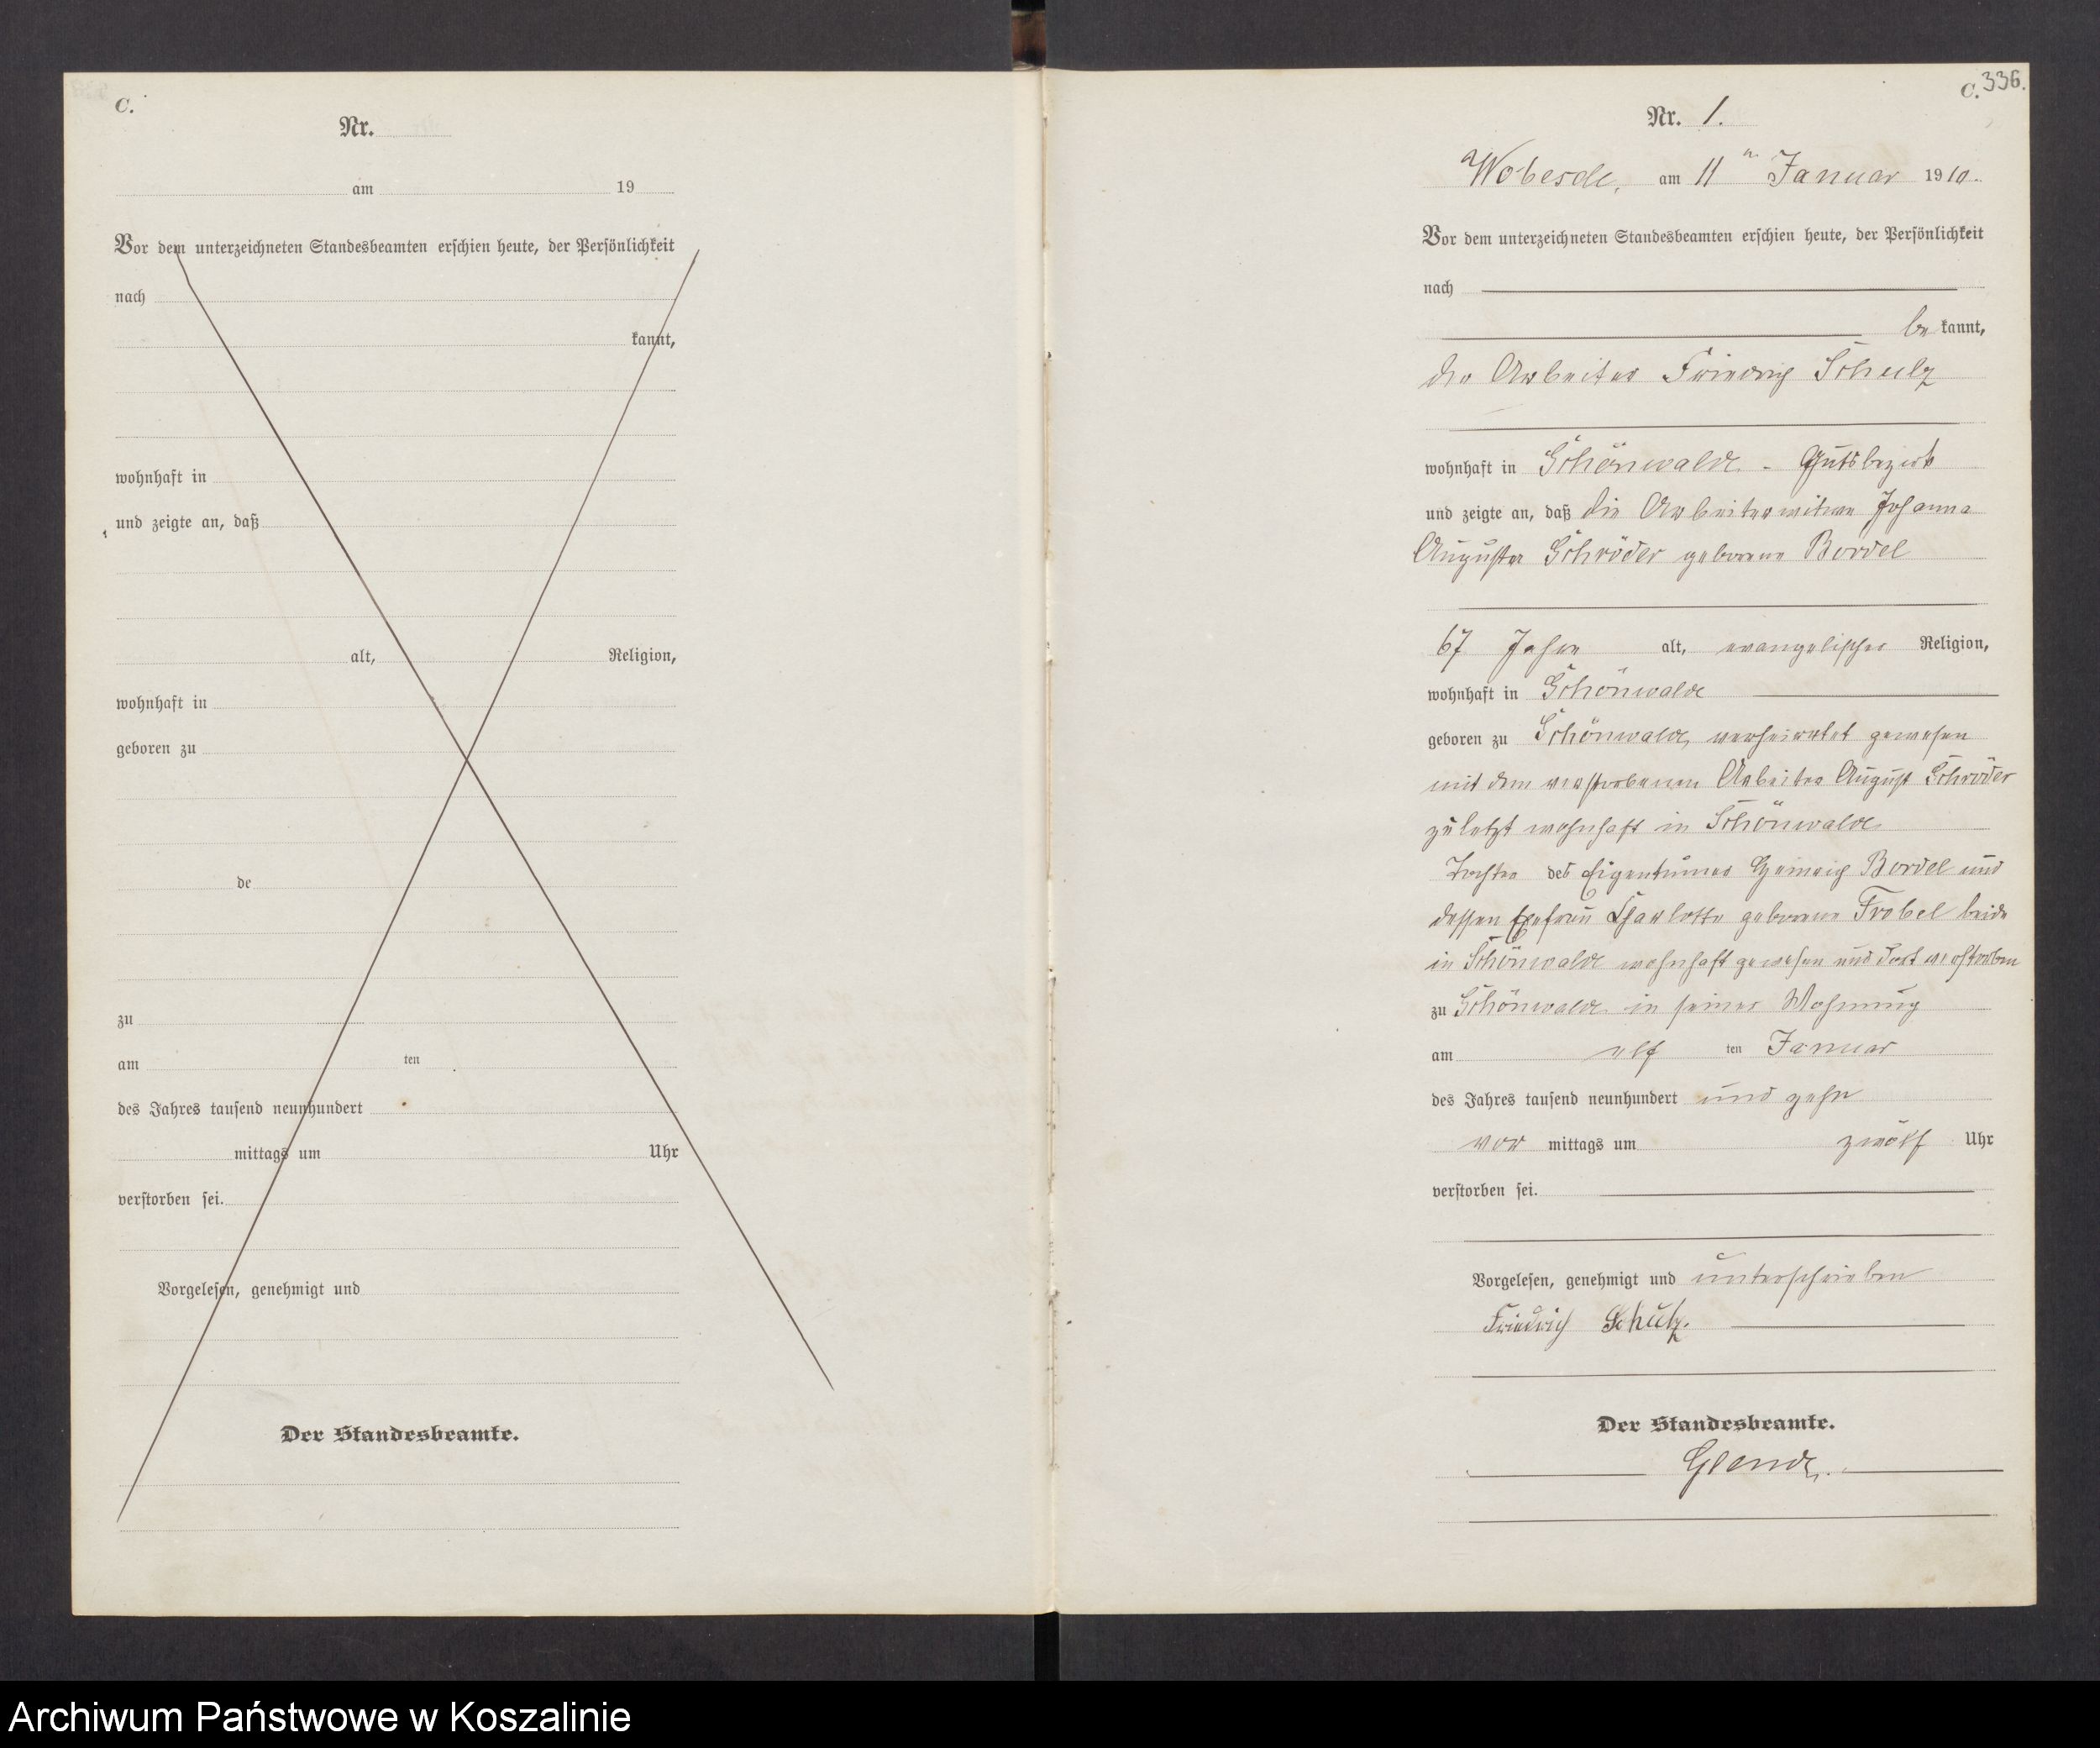 C.
Nr.
am 19
Vor dem unterzeichneten Standesbeamten erschien heute, der Persönlichkeit
nach
kannt,
wohnhaft in
und zeigte an, daß
alt, Religion,
wohnhaft in
geboren zu
de
zu
am ten
des Jahres tausend neunhundert
mittags um Uhr
verstorben sei.
Vorgelesen, genehmigt und
Der Standesbeamte.
C. 336.
Nr. 1.
Wobesde, am 11 Januar 1910.
Vor dem unterzeichneten Standesbeamten erschien heute, der Persönlichkeit
nach
bekannt,
der Arbeiter Friedrich Schulz
wohnhaft in Schönwalde - Gutsbezirk
und zeigte an, daß die Arbeiterwitwe Johanna
Auguste Schröder geborene Bordel
67 Jahre alt, evangelischer Religion,
wohnhaft in Schönwalde
geboren zu Schönwalde, verheiratet gewesen
mit dem verstorbenen Arbeiter August Schröder
zuletzt wohnhaft in Schönwalde
Tochter des Eigentümer Heinrich Bordel und
dessen Ehefrau Charlotte geborene Frobel beide
in Schönwalde wohnhaft gewesen und dort verstorben
zu Schönwalde in seiner Wohnung
am elf ten Januar
des Jahres tausend neunhundert und zehn
vor mittags um zwölf Uhr
verstorben sei.
Vorgelesen, genehmigt und unterschrieben
Friedrich Schulz.
Der Standesbeamte.
Glende.
Archiwum Państwowe w Koszalinie